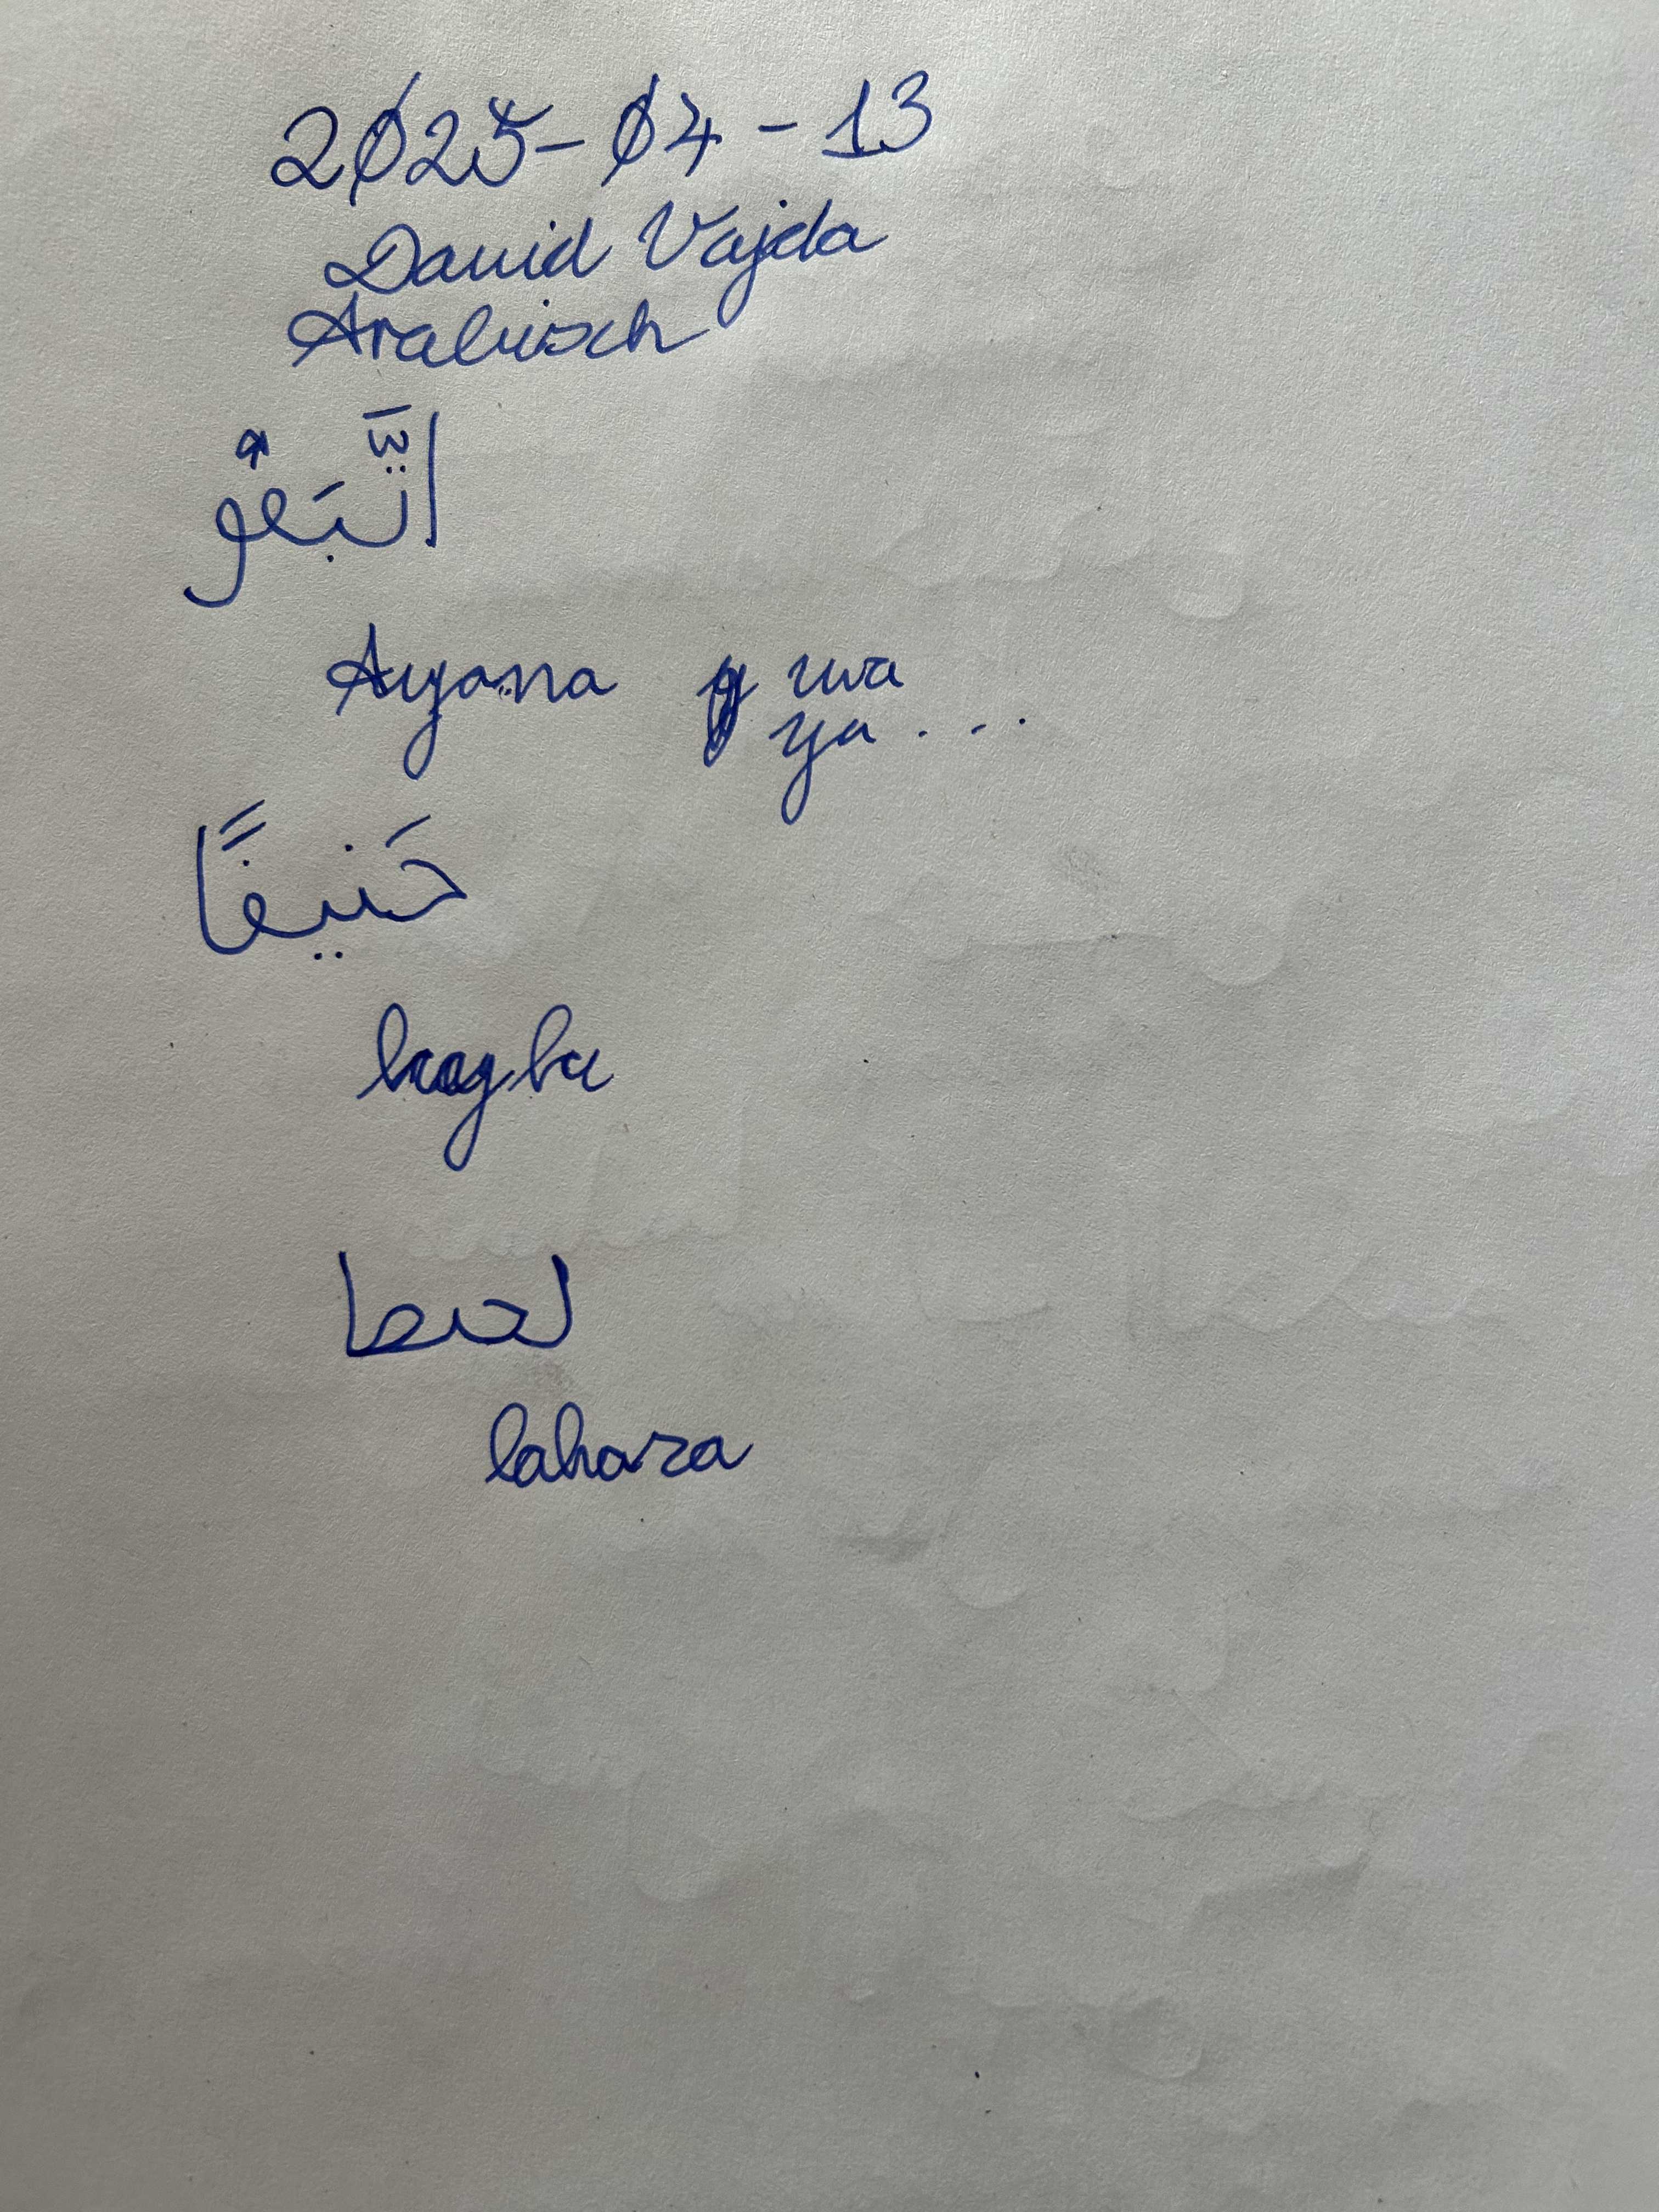 2025-04-13
David Vajda
Arabisch
اتَّبَعُو
Ayana wa
ya....
حَنيفًا
لحطا
lahaza